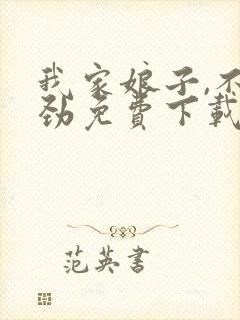 我家娘子,不
劲免费下载
范英书